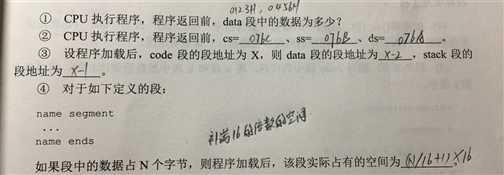 0123H, 0456H
① CPU 执行程序,程序返回前,data 段中的数据为多少?
② CPU 执行程序,程序返回前,cs= 076C 、ss= 076B 、ds= 076A 。
③ 设程序加载后,code 段的段地址为 X,则 data 段的段地址为 X-2 ,stack 段的
段地址为 X-1 。
④ 对于如下定义的段:
name segment
...
name ends
补满16的倍数的空间
如果段中的数据占 N 个字节,则程序加载后,该段实际占有的空间为 (N/16+1)×16